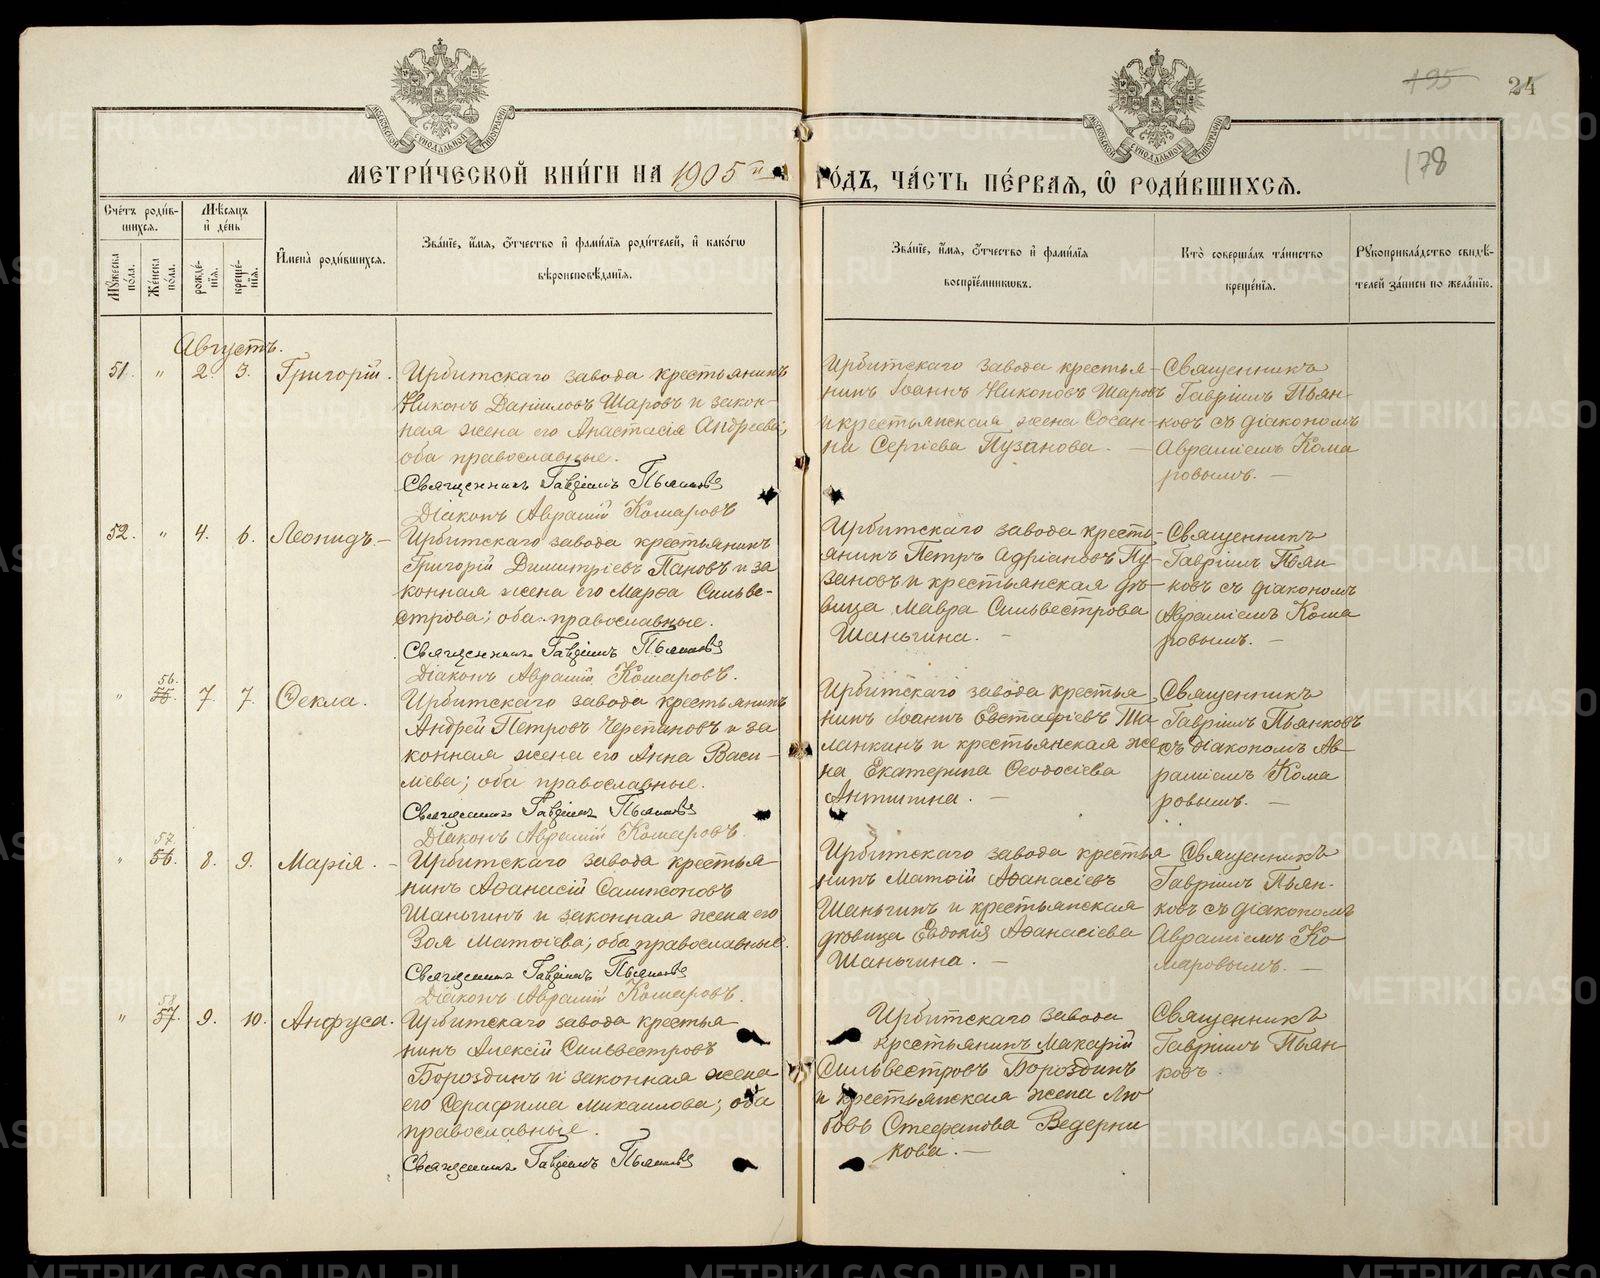 195
24
178
МЕТРИ́ЧЕСКОЙ КНИ́ГИ НА 1905 й
РО́ДЪ, ЧА́СТЬ ПЕ́РВАѦ, Ѽ РОДИ́ВШИХСѦ.
Сче́тъ роди́в-
шихся.
Мѣ́сяцъ
и҆ де́нь
Му́жеска по́ла.
Же́нска по́ла.
рожде́нїѧ.
креще́нїѧ.
И҆мена̀ роди́вшихся.
Зва́нїе, и҆́мѧ, ѻ҆́тчество и҆ фами́лїѧ роди́телей, и҆ како́гѡ
вѣроисповѣ́данїѧ.
Зва́нїе, и҆́мѧ, ѻ҆́тчество и҆ фами́лїѧ
воспрїе́мникѡвъ.
Кто̀ соверша́лъ та́инство
креще́нїѧ.
Рꙋкоприкла́дство свидѣ́-
телей за́писи по жела́нїю.
Августъ.
51. " 2. 3. Григорій.
Ирбитскаго завода крестьянинъ
Никонъ Даніиловъ Шаровъ и закон-
ная жена его Анастасія Андреева;
оба православные.
Священникъ Гавріилъ Пьянковъ
Діаконъ Аврамій Комаровъ
Ирбитскаго завода крестья-
нинъ Іоаннъ Никоновъ Шаровъ
и крестьянская жена Сосан-
на Сергіева Пузанова. —
Священникъ
Гавріилъ Пьян-
ковъ съ діакономъ
Авраміемъ Кома
ровымъ. —
52. " 4. 6. Леонидъ. —
Ирбитскаго завода крестьянинъ
Григорій Димитріевъ Пановъ и за
конная жена его Марѳа Сильве-
строва; оба православные.
Священникъ Гавріилъ Пьянковъ
Діаконъ Аврамій Комаровъ.
Ирбитскаго завода кресть-
янинъ Петръ Адріановъ Пу-
зановъ и крестьянская дѣ-
вица Мавра Сильвестрова
Шаньгина. —
Священникъ
Гавріилъ Пьян
ковъ съ діакономъ
Авраміемъ Кома
ровымъ. —
" 56. 55. 7. 7. Ѳекла.
Ирбитскаго завода крестьянинъ
Андрей Петровъ Черепановъ и за
конная жена его Анна Васи-
льева; оба православные.
Священникъ Гавріилъ Пьянковъ
Діаконъ Аврамій Комаровъ.
Ирбитскаго завода крестья
нинъ Іоаннъ Евстафіевъ Та
ланкинъ и крестьянская же
на Екатерина Ѳеодосіева
Антипина. —
Священникъ
Гавріилъ Пьянковъ
съ діакономъ Ав-
раміемъ Кома
ровымъ. —
" 57 56. 8. 9. Марія. —
Ирбитскаго завода крестья
нинъ Аѳанасій Сампсоновъ
Шаньгинъ и законная жена его
Зоя Матѳіева; оба православные.
Священникъ Гавріилъ Пьянковъ
Діаконъ Аврамій Комаровъ.
Ирбитскаго завода крестья
нинъ Матѳій Аѳанасіевъ
Шаньгинъ и крестьянская
дѣвица Евдокія Аѳанасіева
Шаньгина. —
Священникъ
Гавріилъ Пьян-
ковъ съ діакономъ
Авраміемъ Ко
маровымъ. —
" 58 57. 9. 10. Анфуса.
Ирбитскаго завода крестья
нинъ Алексій Сильвестровъ
Бороздинъ и законная жена
его Серафима Михаилова; оба
православные.
Священникъ Гавріилъ Пьянковъ
Ирбитскаго завода
крестьянинъ Макарій
Сильвестровъ Бороздинъ
и крестьянская жена Лю
бовь Стефанова Ведерни
кова. —
Священникъ
Гавріилъ Пьян
ковъ.
METRIKI.GASO-URAL.RU